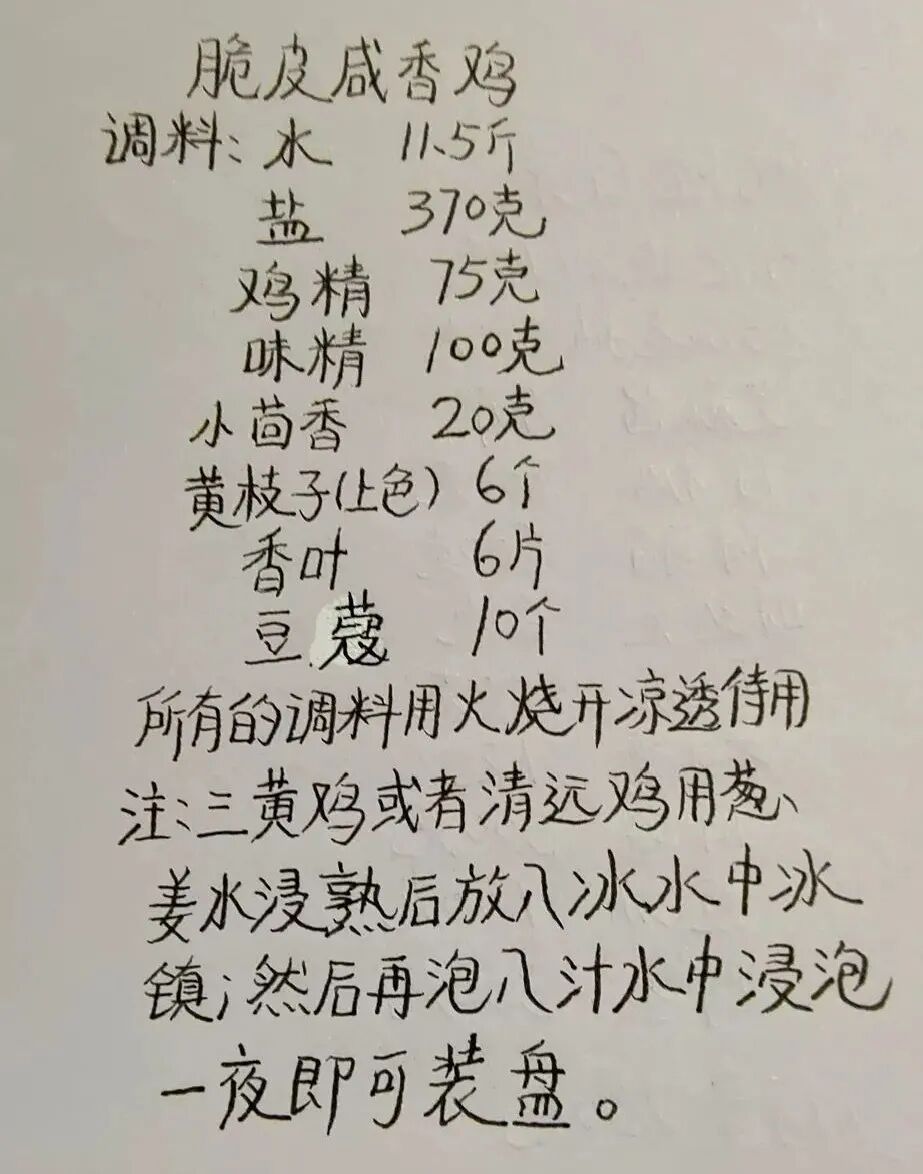 脆皮咸香鸡
调料:水 11.5斤
盐 370克
鸡精 75克
味精 100克
小茴香 20克
黄枝子(上色) 6个
香叶 6片
豆蔻 10个
所有的调料用火烧开凉透待用
注:三黄鸡或者清远鸡用葱、
姜水浸熟后放入冰水中冰
镇;然后再泡入汁水中浸泡
一夜即可装盘。